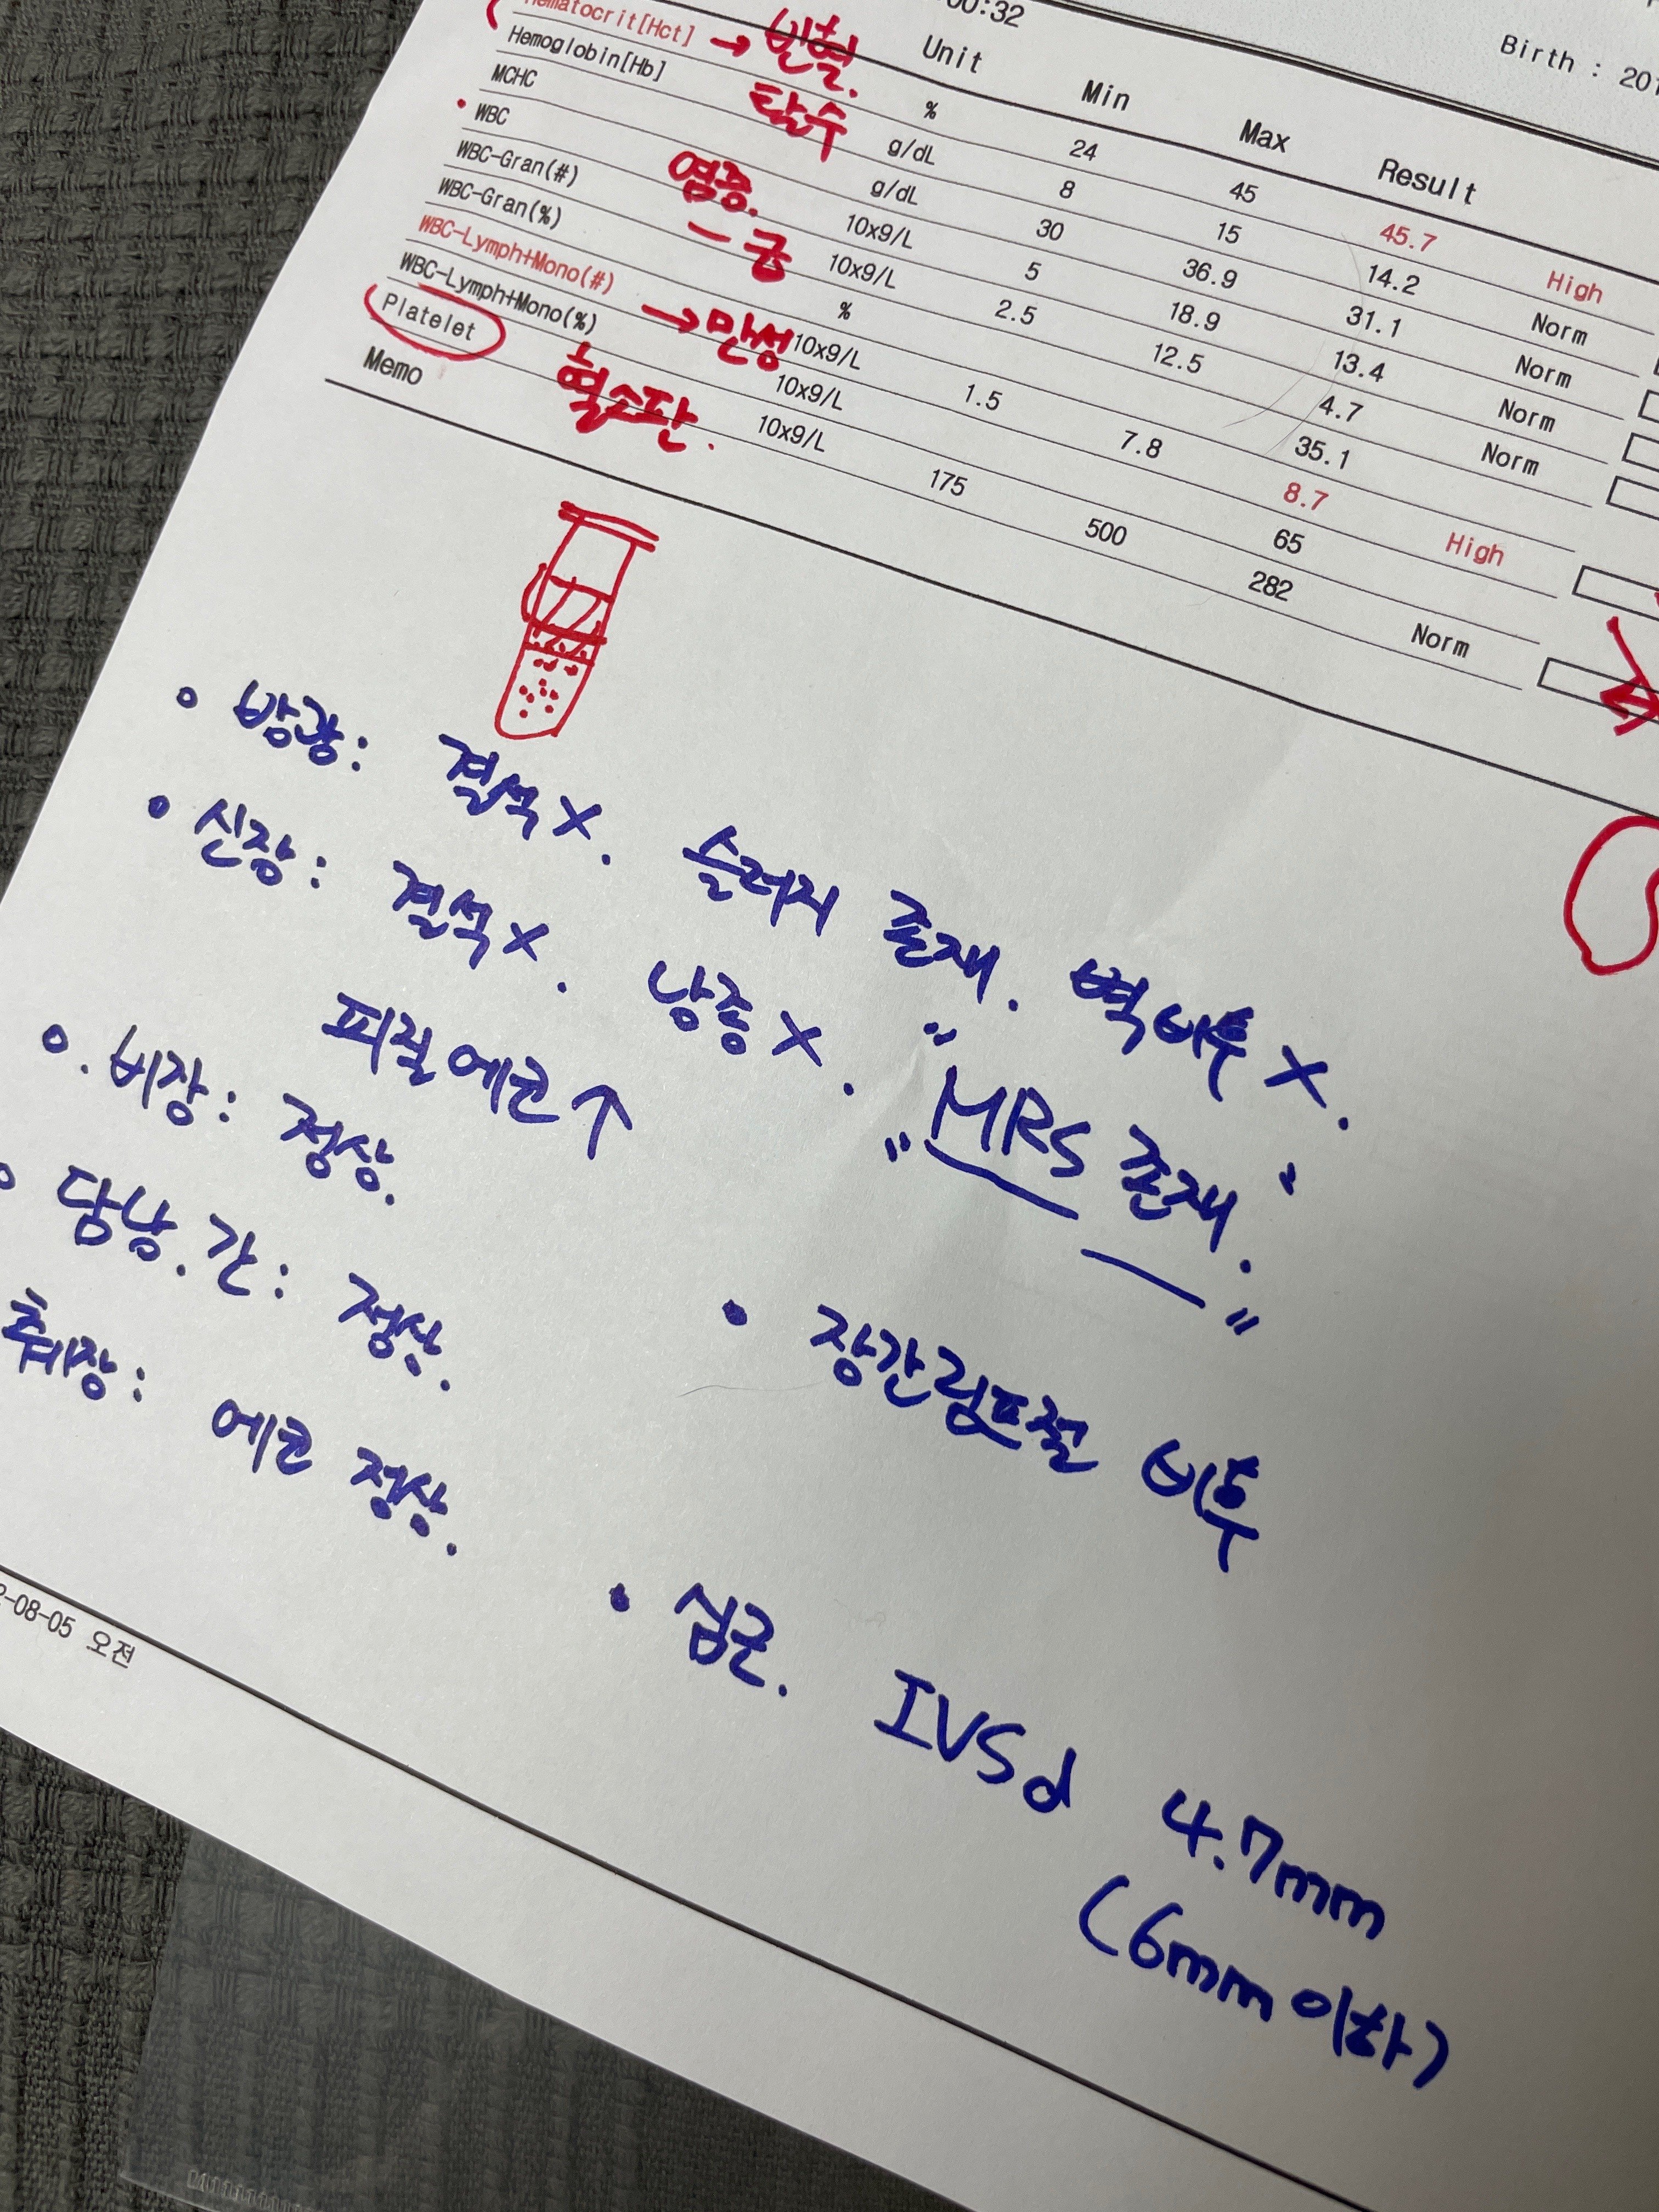 00:32
Birth : 201
Unit Min Max Result
Hematocrit[Hct] → 빈혈. % 24 45 45.7 High
탈수
Hemoglobin[Hb] g/dL 8 15 14.2 Norm
MCHC g/dL 30 36.9 31.1 Norm
WBC 염증. 10x9/L 5 18.9 13.4 Norm
WBC-Gran(#) - 급 10x9/L 2.5 12.5 4.7 Norm
WBC-Gran(%) % 35.1
WBC-Lymph+Mono(#) → 만성 10x9/L 1.5 7.8 8.7 High
WBC-Lymph+Mono(%) 10x9/L 65
Platelet 혈소판. 10x9/L 175 500 282 Norm
Memo
방광: 결석 X. 슬러지 존재. 벽비후 X.
신장: 결석 X. 낭종 X. "MRS 존재."
피질에코 ↑
비장: 정상.
담낭.간: 정상.
췌장: 에코 정상.
장간림프절 비후
심근. IVSd 4.7mm
(6mm 이하)
2-08-05 오전